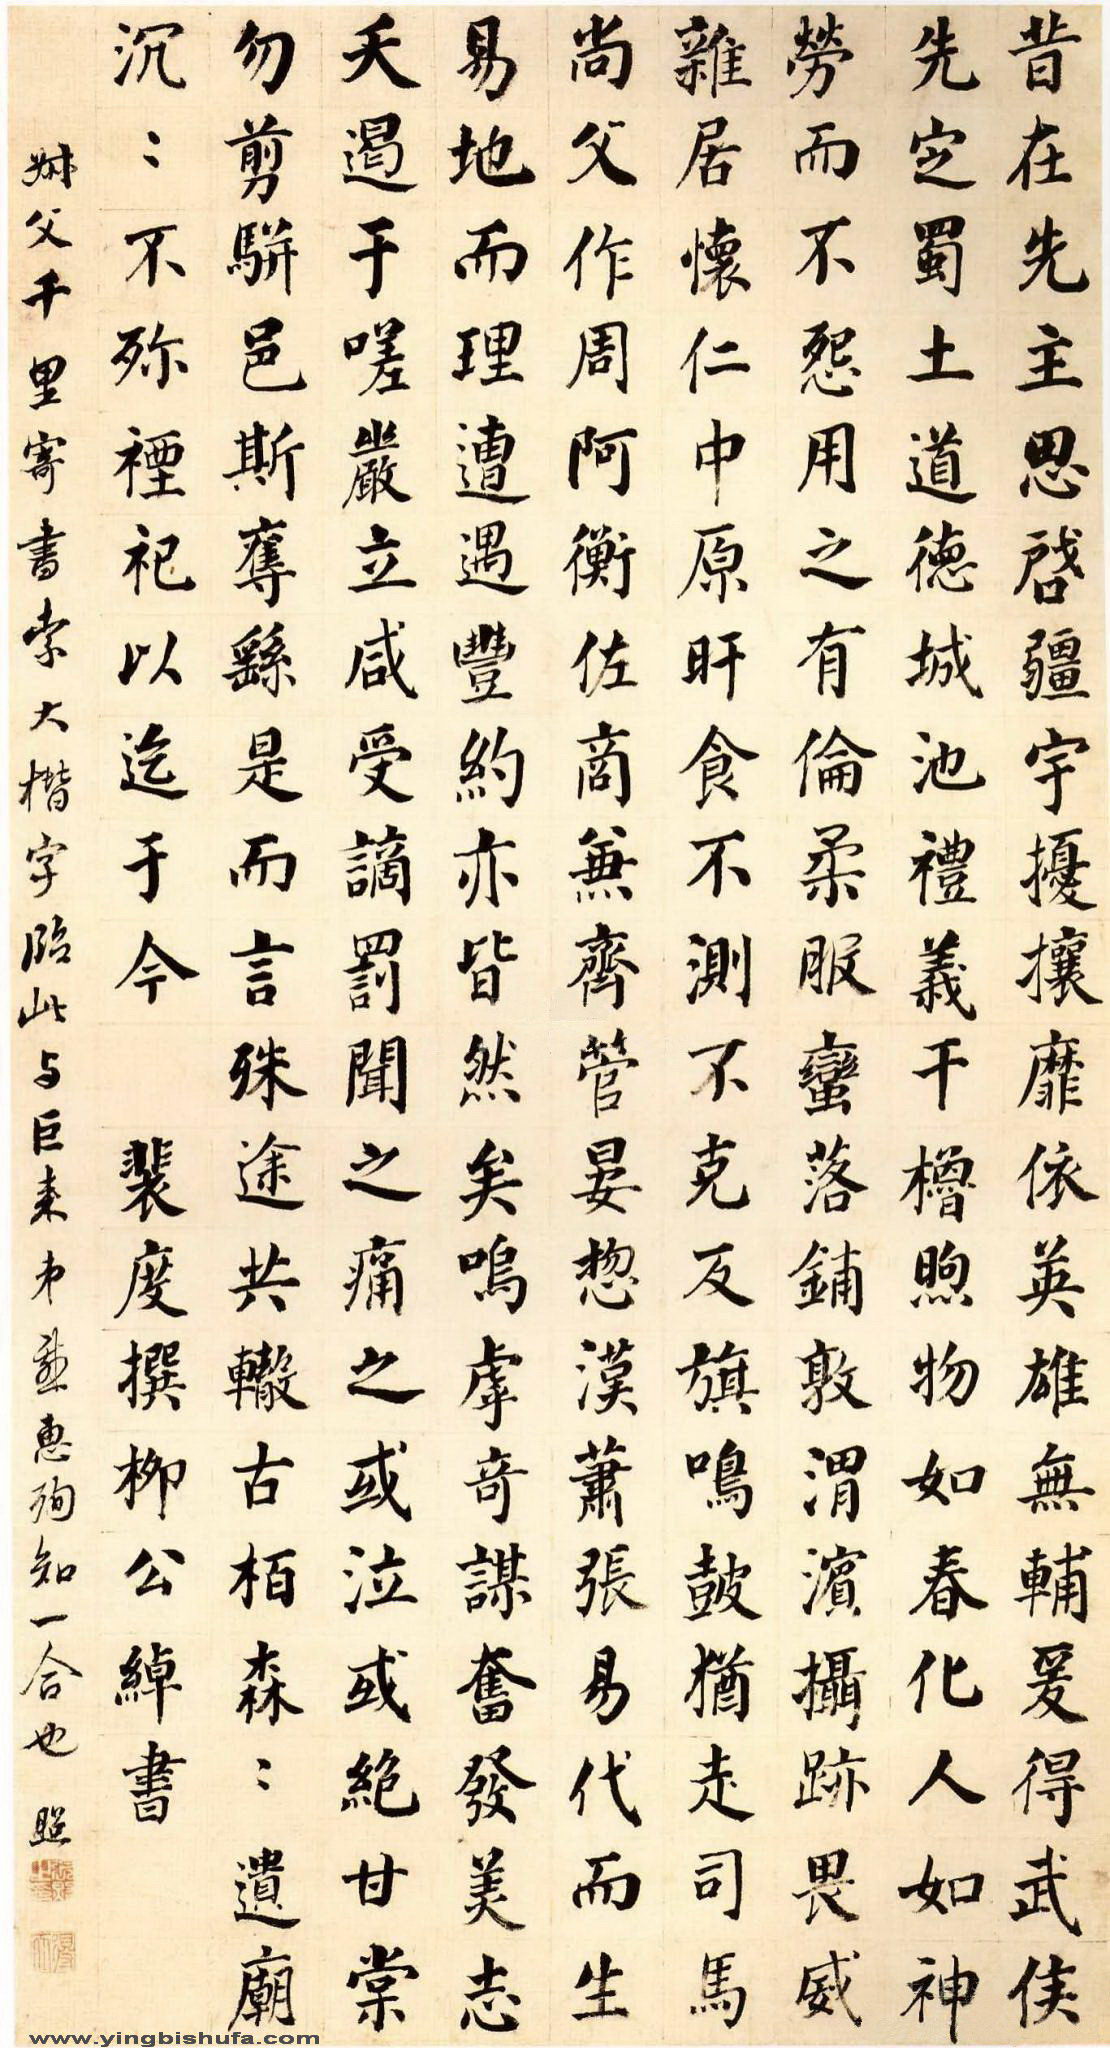 昔在先主思啓疆宇擾攘靡依英雄無輔爰得武侯
先定蜀土道德城池禮義干櫓煦物如春化人如神
勞而不怨用之有倫柔服蠻落鋪敦渭濱攝跡畏威
雜居懷仁中原旰食不測不克反旗鳴鼓猶走司馬
尚父作周阿衡佐商兼齊管晏揔漢蕭張易代而生
易地而理遭遇豐約亦皆然矣嗚虖奇謀奮發美志
夭遏于嗟嚴立咸受謫罰聞之痛之或泣或絕甘棠
勿剪駢邑斯奪繇是而言殊途共轍古柏森〻遺廟
沉〻不殄禋祀以迄于今 裴度撰柳公綽書
叔父千里寄書索大楷字臨此与巨來弟惠殉知一合也 照
www.yingbishufa.com